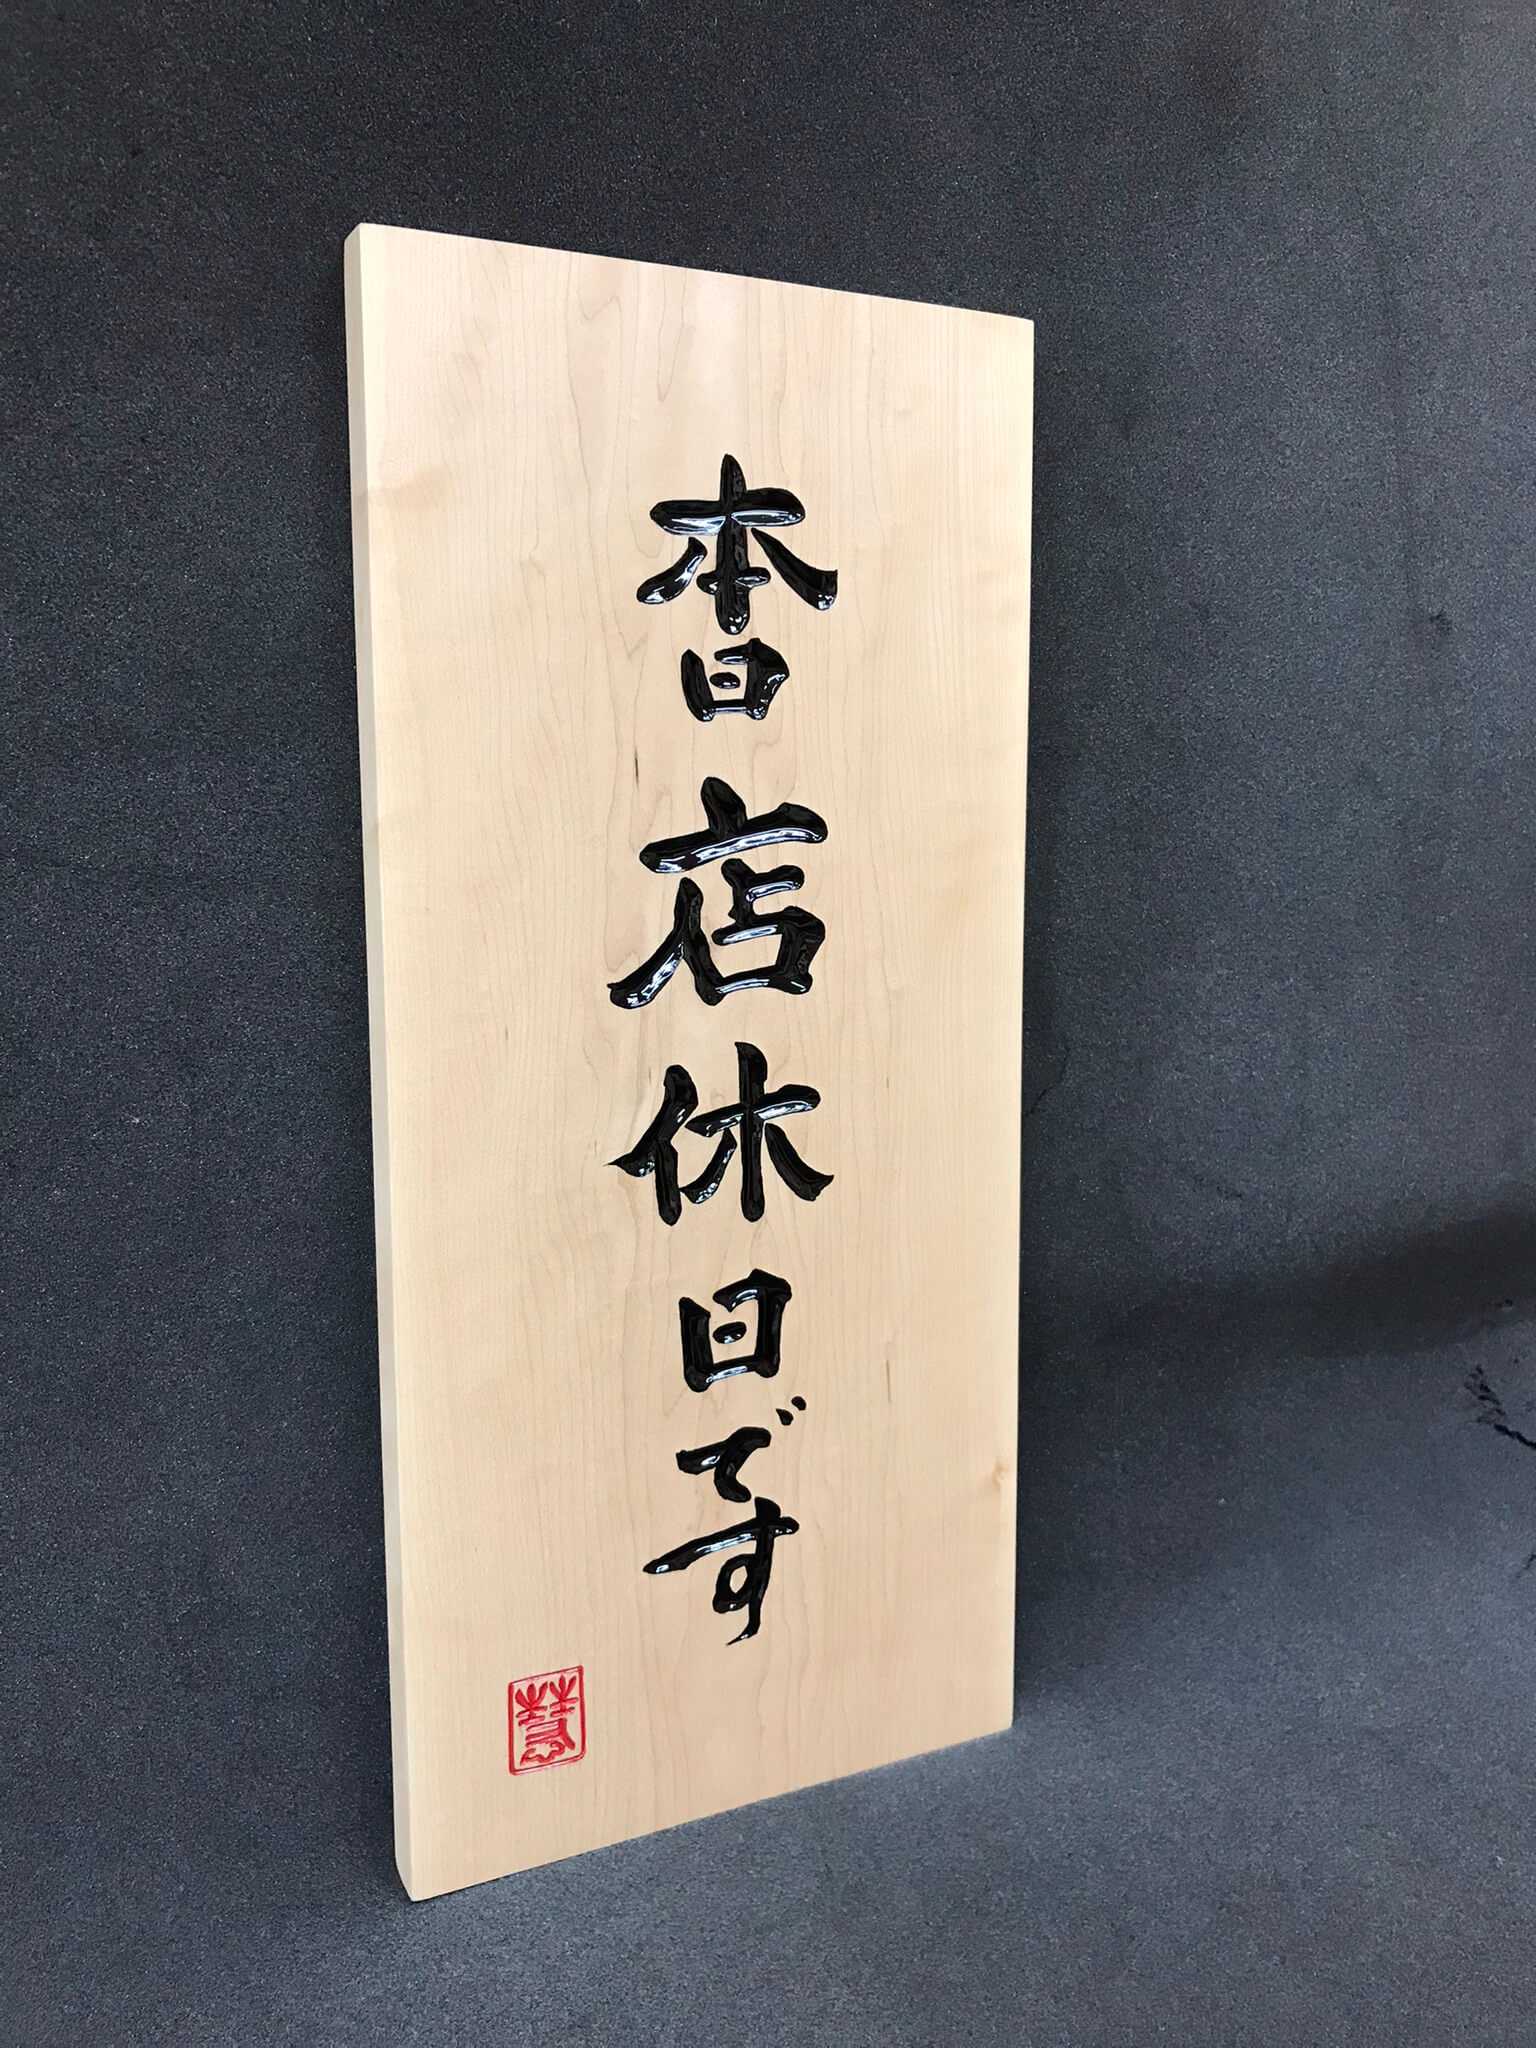 本日店休日です